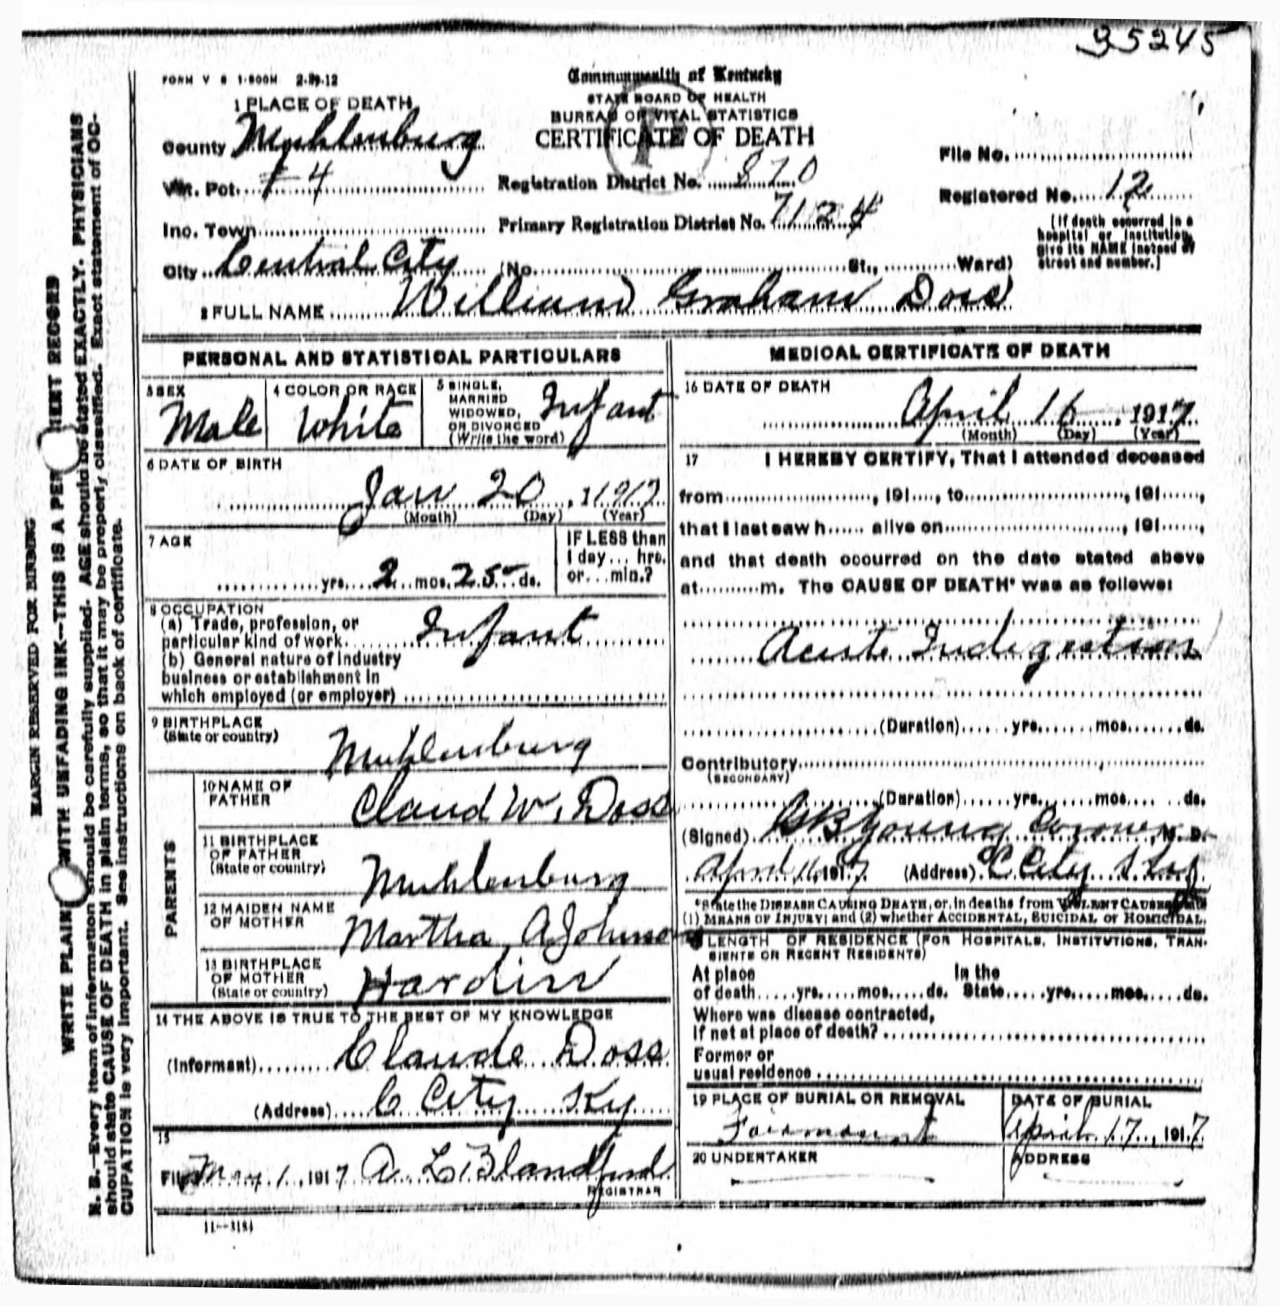 35245
FORM V S 1-500M 2-29-12
Commonwealth of Kentucky
STATE BOARD OF HEALTH
BUREAU OF VITAL STATISTICS
CERTIFICATE OF DEATH
1 PLACE OF DEATH
County Muhlenburg
Vot. Pct. # 4
Inc. Town
City Central City (No. St., Ward)
Registration District No. 870
Primary Registration District No. 7124
File No.
Registered No. 12
[If death occurred in a
hospital or institution,
give its NAME instead of
street and number.]
2 FULL NAME William Graham Doss
PERSONAL AND STATISTICAL PARTICULARS
3 SEX
Male
4 COLOR OR RACE
White
5 SINGLE,
MARRIED
WIDOWED,
OR DIVORCED
(Write the word)
Infant
6 DATE OF BIRTH
Jan 20, 1917
(Month) (Day) (Year)
7 AGE
yrs. 2 mos. 25 ds.
IF LESS than
1 day... hrs.
or... min.?
8 OCCUPATION
(a) Trade, profession, or
particular kind of work Infant
(b) General nature of industry
business or establishment in
which employed (or employer)
9 BIRTHPLACE
(State or country)
Muhlenburg
PARENTS
10 NAME OF
FATHER
Claud W. Doss
11 BIRTHPLACE
OF FATHER
(State or country)
Muhlenburg
12 MAIDEN NAME
OF MOTHER
Martha A Johnson
13 BIRTHPLACE
OF MOTHER
(State or country)
Hardin
14 THE ABOVE IS TRUE TO THE BEST OF MY KNOWLEDGE
(Informant) Claude Doss
(Address) C City Ky
15
Filed May 1, 1917 A. L. Blandford
REGISTRAR
11-3184
MEDICAL CERTIFICATE OF DEATH
16 DATE OF DEATH
April 16, 1917
(Month) (Day) (Year)
17 I HEREBY CERTIFY, That I attended deceased
from , 191 , to , 191 ,
that I last saw h alive on , 191 ,
and that death occurred on the date stated above
at m. The CAUSE OF DEATH* was as follows:
Acute Indigestion
(Duration) yrs. mos. ds.
Contributory
(SECONDARY)
(Duration) yrs. mos. ds.
(Signed) Young Coroner M. D.
April 1917 (Address) C City
*State the DISEASE CAUSING DEATH, or, in deaths from VIOLENT CAUSES state
(1) MEANS OF INJURY; and (2) whether ACCIDENTAL, SUICIDAL or HOMICIDAL.
18 LENGTH OF RESIDENCE (FOR HOSPITALS, INSTITUTIONS, TRAN-
SIENTS OR RECENT RESIDENTS)
At place In the
of death yrs. mos. ds. State yrs. mos. ds.
Where was disease contracted,
If not at place of death?
Former or
usual residence
19 PLACE OF BURIAL OR REMOVAL
Fairmount
DATE OF BURIAL
April 17, 1917
20 UNDERTAKER
ADDRESS
MARGIN RESERVED FOR BINDING
WRITE PLAINLY WITH UNFADING INK—THIS IS A PERMANENT RECORD
N. B.—Every item of information should be carefully supplied. AGE should be stated EXACTLY. PHYSICIANS
should state CAUSE OF DEATH in plain terms, so that it may be properly classified. Exact statement of OC-
CUPATION is very important. See instructions on back of certificate.